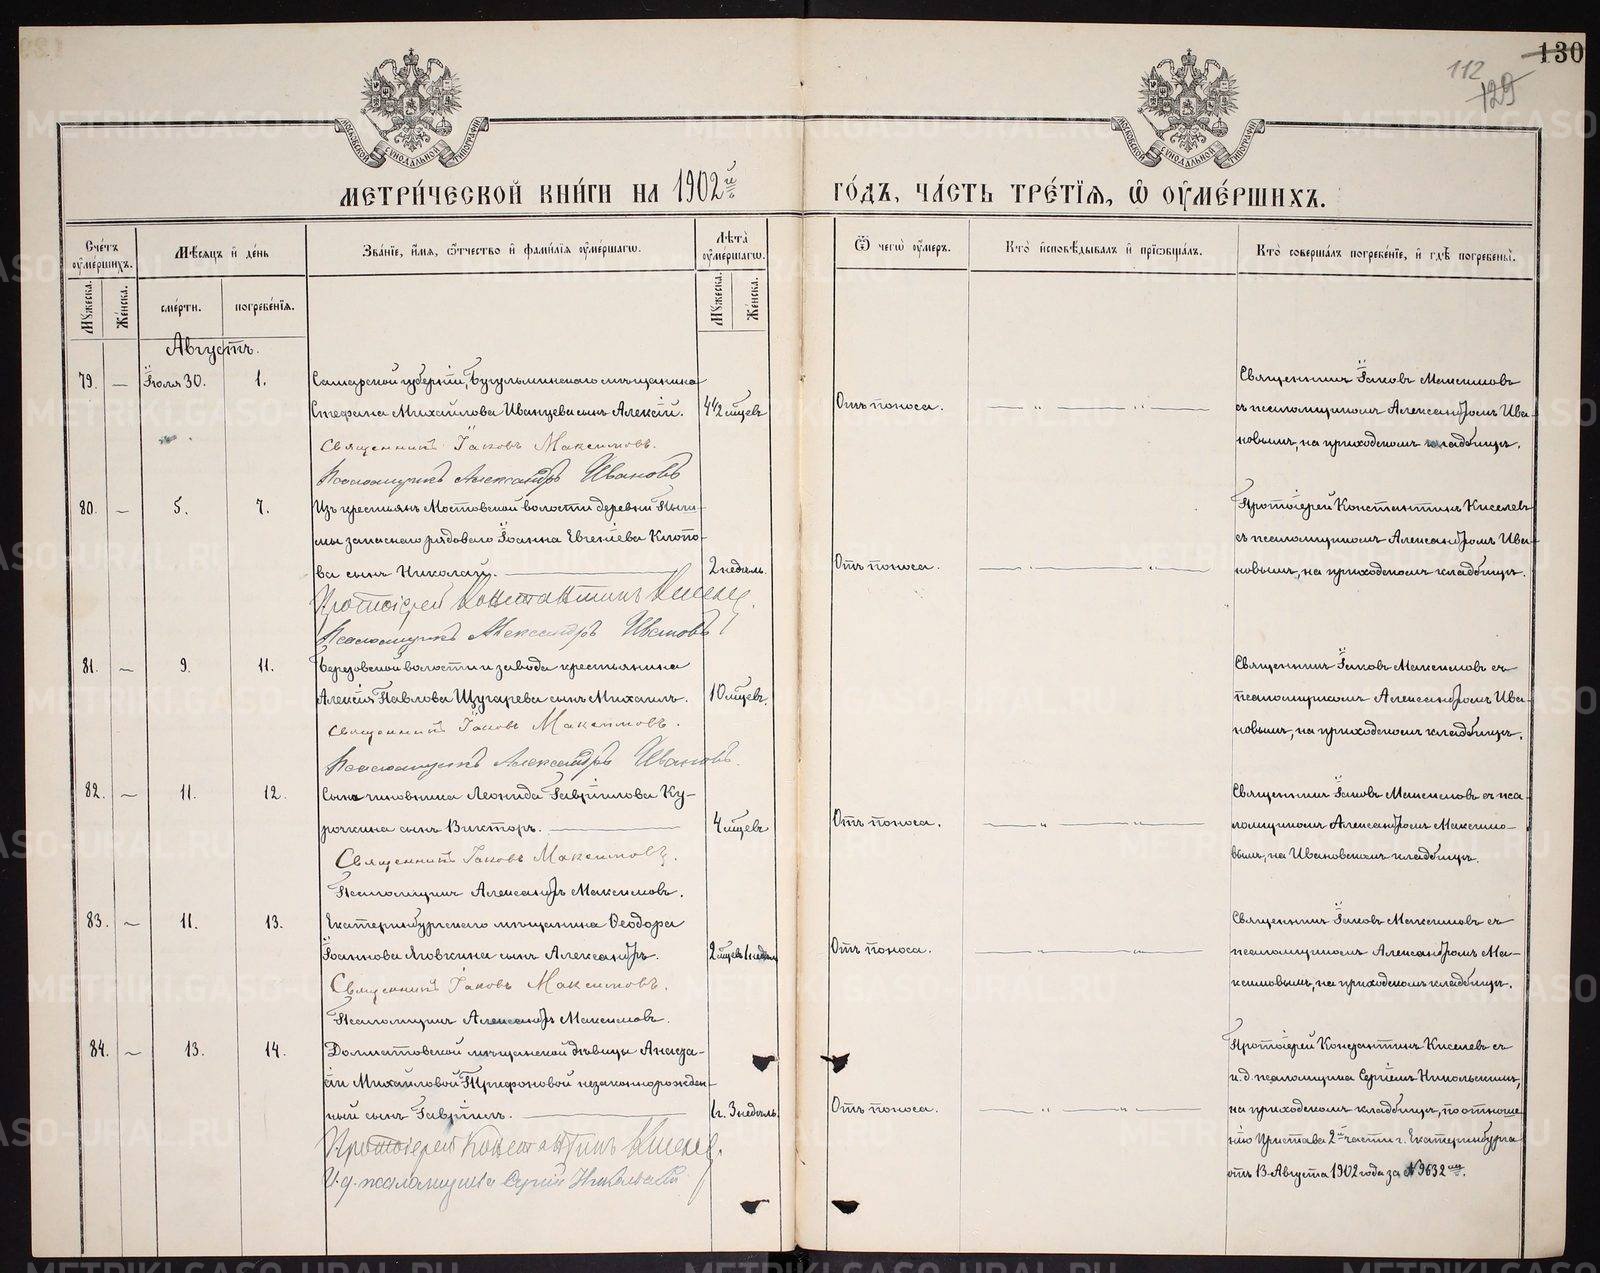 130
112
129
МОСКОВСКОЙ СѴНОДАЛЬНОЙ ТИПОГРАФІИ
МОСКОВСКОЙ СѴНОДАЛЬНОЙ ТИПОГРАФІИ
МЕТРИ́ЧЕСКОЙ КНИ́ГИ НА 1902й
ГО́ДЪ, ЧА́СТЬ ТРЕ́ТІѦ, Ѡ҆ ОУ҆МЕ́РШИХЪ.
Сче́тъ оу҆ме́ршихъ.
Мѣ́сяцъ и҆ де́нь
Зва́нїе, и҆́мя, ѻ҆́тчество и҆ фами́лїя оу҆ме́ршагѡ.
Лѣта̀ оу҆ме́ршагѡ.
Ѿ чегѡ̀ оу҆́меръ.
Кто̀ и҆сповѣ́дывалъ и҆ прїѡбща́лъ.
Кто̀ соверша́лъ погребе́нїе, и҆ гдѣ̀ погребены̀.
Мꙋ́жеска.
Же́нска.
сме́рти.
погребе́нїя.
Мꙋ́жеска.
Же́нска.
Августъ.
79. — Іюля 30. 1. Самарской губерніи, Бугульминскаго мѣщанина
Стефана Михайлова Иванцева сынъ Алексій. 4 1/2 мѣсцевъ
Священникъ Іаковъ Максимовъ.
Псаломщикъ Александръ Ивановъ
Отъ поноса. — „ — „ —
Священникъ Іаковъ Максимовъ
съ псаломщикомъ Александромъ Ива-
новымъ, на приходскомъ кладбищѣ.
80. — 5. 7. Изъ крестьянъ Мостовской волости деревни Пыши-
мы запаснаго рядоваго Іоанна Евгеніева Клопо-
ва сынъ Николай. — 2 недѣль.
Протоіерей Константинъ Киселевъ.
Псаломщикъ Александръ Ивановъ
Отъ поноса. — „ — „ —
Протоіерей Константинъ Киселевъ
съ псаломщикомъ Александромъ Ива-
новымъ, на приходскомъ кладбищѣ.
81. — 9. 11. Березовской волости и завода крестьянина
Алексія Павлова Щугарева сынъ Михаилъ. 10 мѣсцевъ.
Священникъ Іаковъ Максимовъ.
Псаломщикъ Александръ Ивановъ.
Священникъ Іаковъ Максимовъ съ
псаломщикомъ Александромъ Ива-
новымъ, на приходскомъ кладбищѣ.
82. — 11. 12. Сынъ чиновника Леонида Гавріилова Ку-
рочкина сынъ Викторъ. — 4 мѣсцевъ
Священникъ Іаковъ Максимовъ.
Псаломщикъ Александръ Максимовъ.
Отъ поноса. — „ — „ —
Священникъ Іаковъ Максимовъ съ пса-
ломщикомъ Александромъ Максимо-
вымъ, на Ивановскомъ кладбищѣ.
83. — 11. 13. Екатеринбургскаго мѣщанина Ѳеодора
Іоаннова Яговкина сынъ Александръ. 2 мѣсцевъ 1 недѣли
Священникъ Іаковъ Максимовъ.
Псаломщикъ Александръ Максимовъ.
Отъ поноса. — „ — „ —
Священникъ Іаковъ Максимовъ съ
псаломщикомъ Александромъ Ма-
ксимовымъ, на приходскомъ кладбищѣ.
84. — 13. 14. Долматовской мѣщанской дѣвицы Анаста-
сіи Михайловой Трифоновой незаконнорожден-
ный сынъ Гавріилъ. — 1 г. 3 недѣль.
Протоіерей Константинъ Киселевъ.
И. д. псаломщика Сергій Никольскій
Отъ поноса. — „ — „ —
Протоіерей Константинъ Киселевъ съ
и. д. псаломщика Сергіемъ Никольскимъ,
на приходскомъ кладбищѣ, по отноше-
нію Пристава 2й части г. Екатеринбурга
отъ 13 Августа 1902 года за № 9632мъ.
METRIKI.GASO-URAL.RU